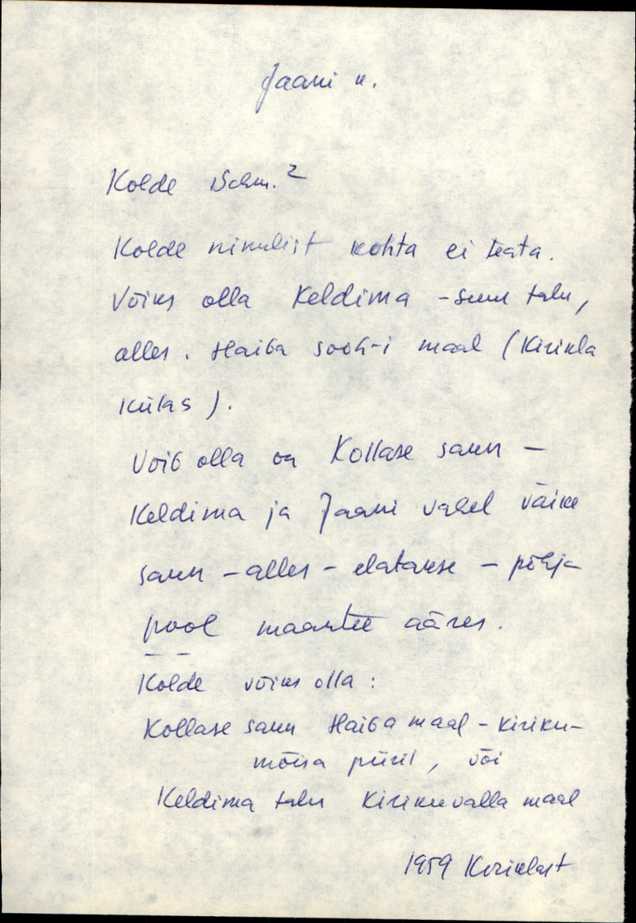 Jaani u.
Kolde Schm.²
Kolde nimelist kohta ei teata.
Võiks olla Keldima - suur talu,
alles. Haiba sooh-i maal (Kirikla
külas).
Võib olla on Kollase saun -
Keldima ja Jaani vahel väike
saun - alles - elatakse - põhja
pool maantee ääres.
Kolde võiks olla:
Kollase saun Haiba maal - kiriku-
mõisa piiril, või
Keldima talu Kirikuvalla maal
1959 Kiriklast